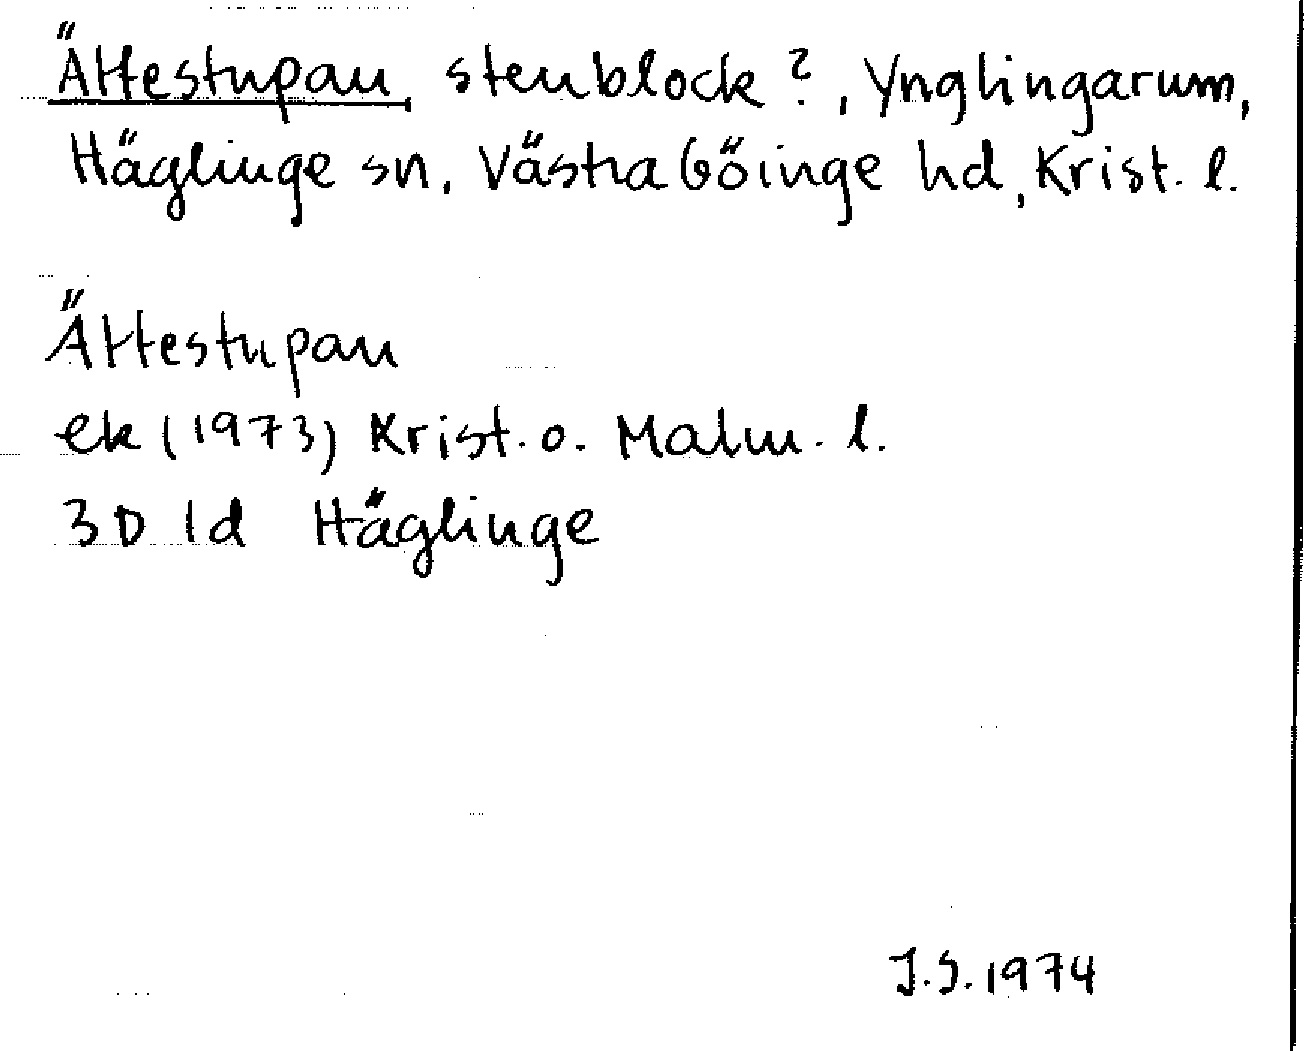 Ättestupan, stenblock?, Ynglingarum,
Häglinge sn, Västra Göinge hd, Krist. l.
Ättestupan
ek (1973) Krist. o. Malm. l.
3D 1d Häglinge
J.S. 1974